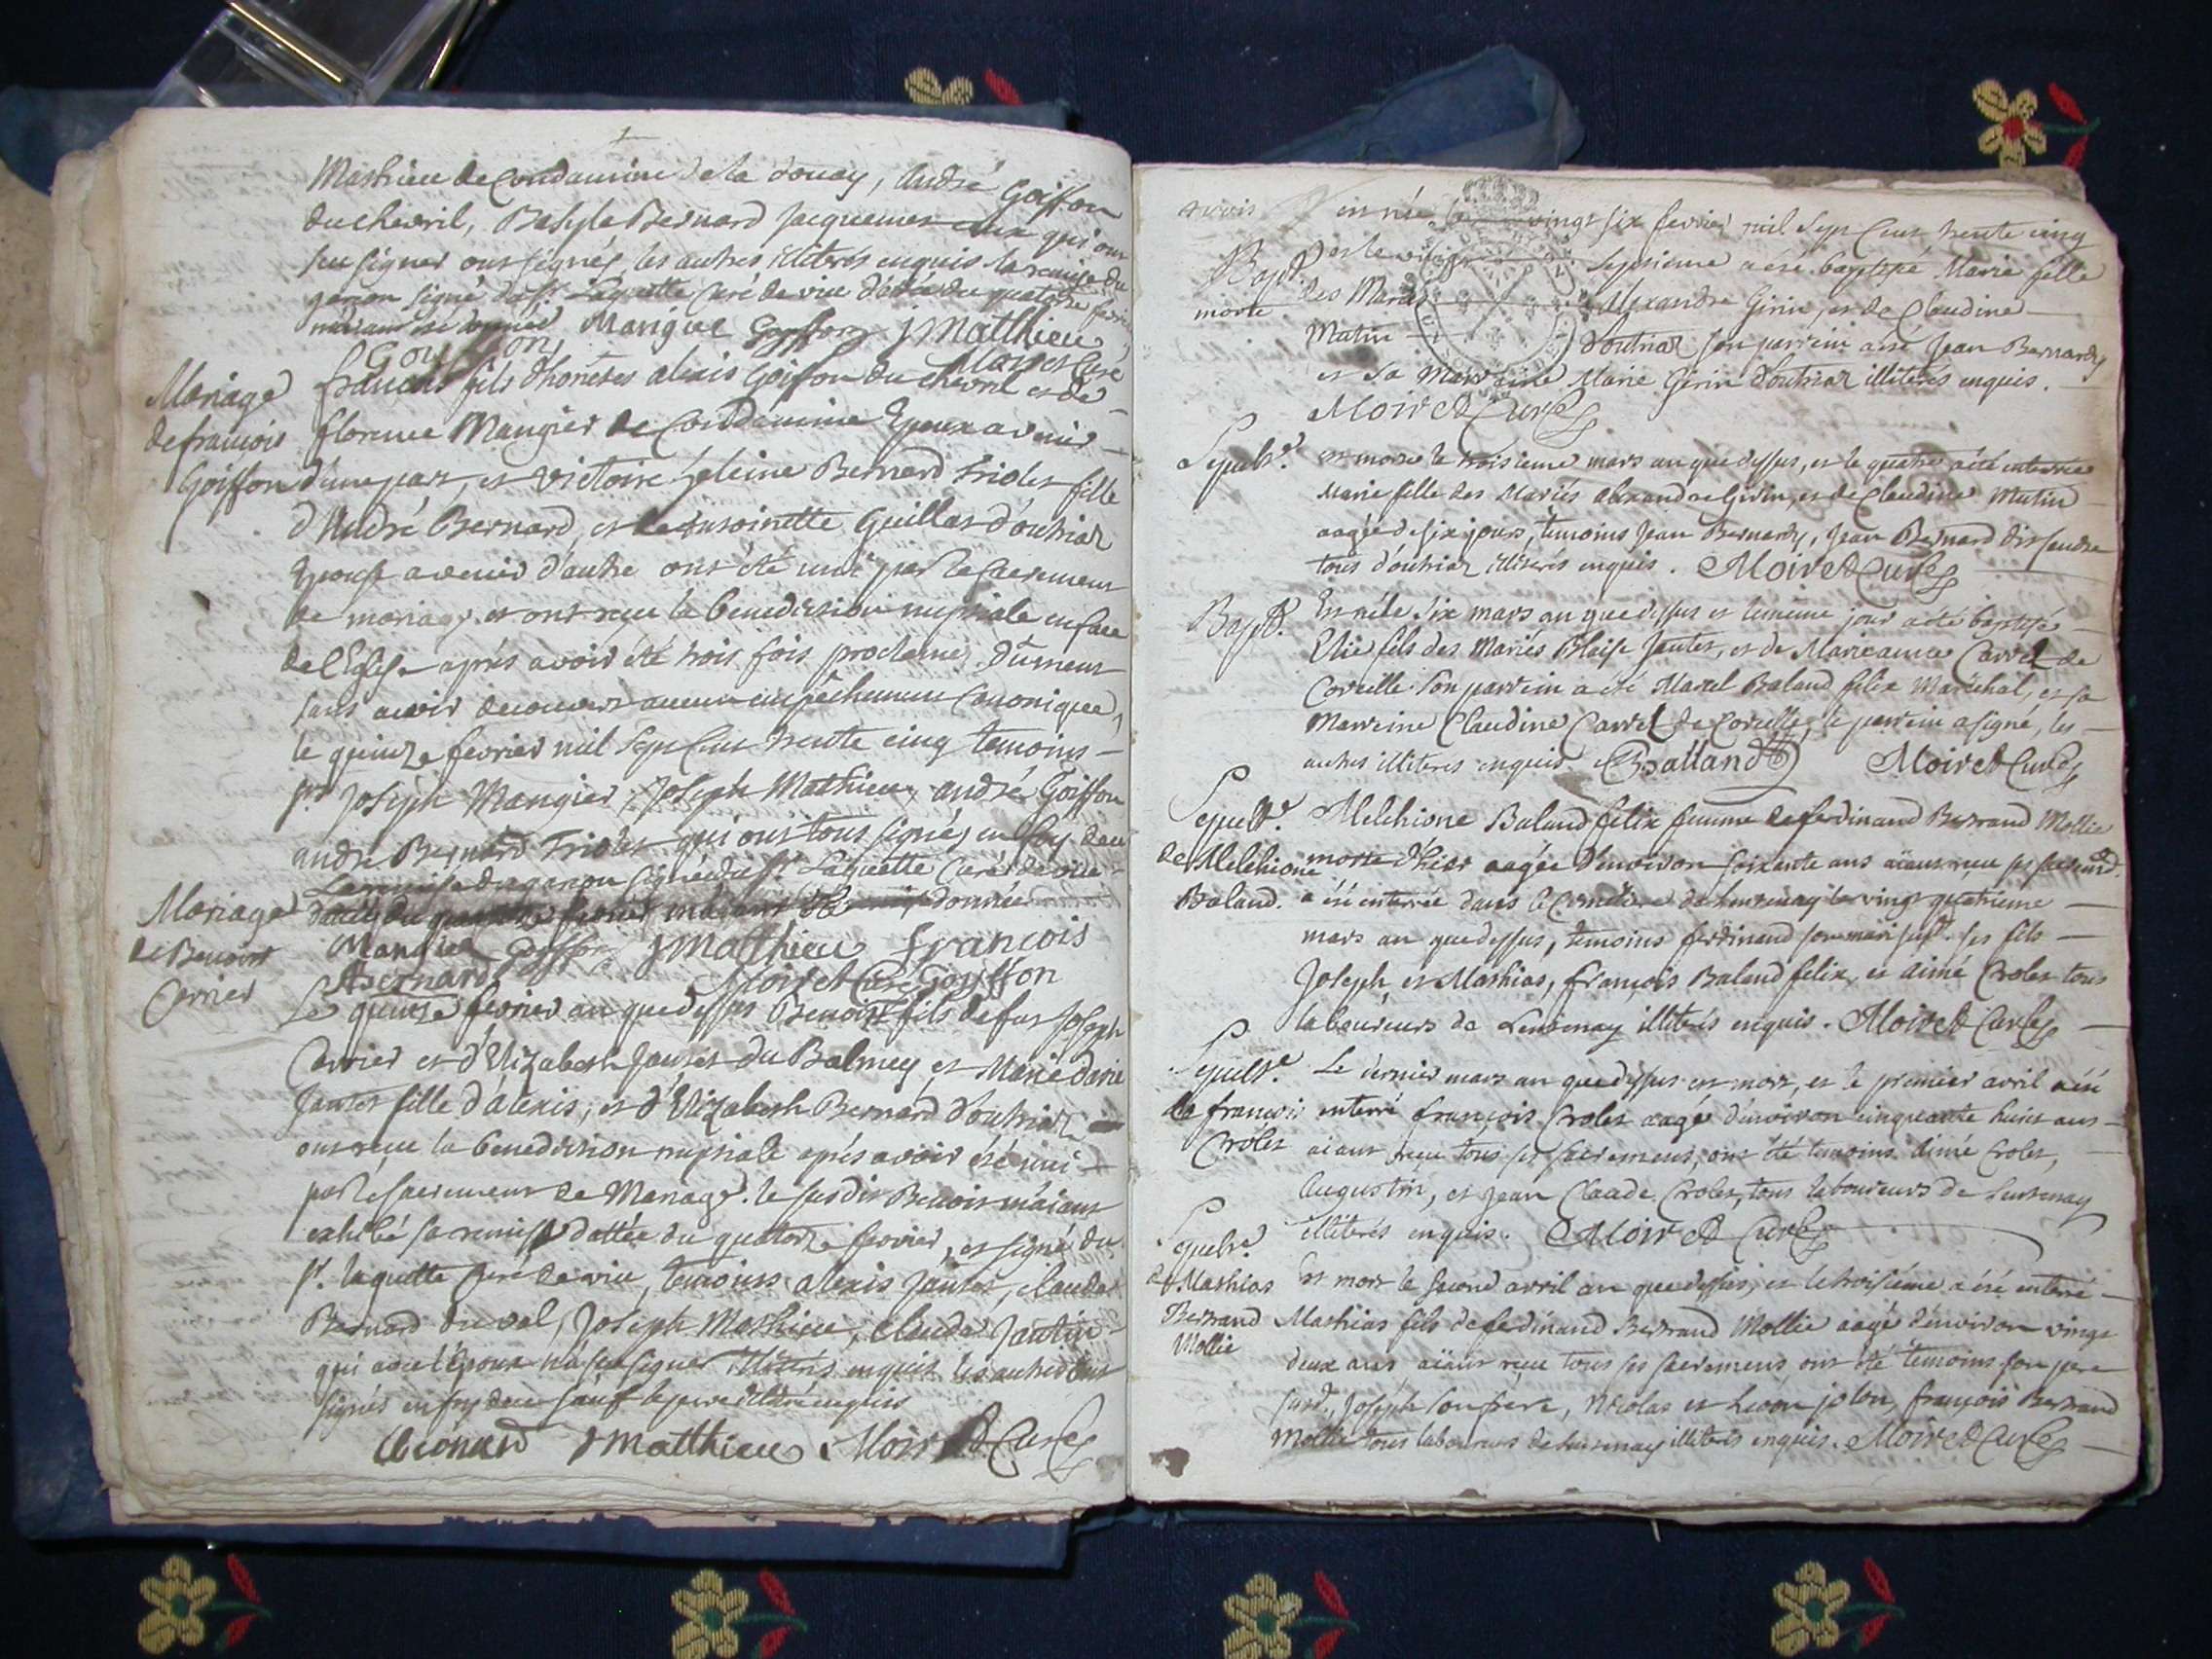 Mathieu de Condamine de la Douay, André Goiffon
du chevril, Basyle Bernard Jacquemet eux qui ont
sçu signer ont signés, les autres illiterés enquis la remise du
garçon signé du Sr. Laguette Curé de vue dattée du quatorze fevrier
m'aiant été donnée Mangier Goyffon J Matthieu
Goiffon Moiret Curé
Mariage
de francois
Goiffon
francois fils d'honetes alexis Goiffon du chevril et de
florence Mangier de Condamine Epoux avenir
d'une part, et victoire heleine Bernard Triolet fille
d'André Bernard, et de antoinette Guillot d'outriaz
Epouse avenir d'autre ont été uni par le sacrement
de mariage et ont reçu la benediction nuptiale en face
de l'Eglise aprés avoir été trois fois proclamés dument
sans avoir decouvert aucun empêchement Canonique,
le quinze fevrier mil sept cent trente cinq temoins
sr Joseph Mangier, Joseph Mathieu, andré Goiffon
andré Bernard Triolet qui ont tous signés en foy de ce
La remise du garçon signée du Sr Laguette Curé de vue
dattée du quatorze fevrier m'aiant été donnée
Mangier Goyffon J Matthieu francois
A Bernard Moiret Curé Goyffon
Mariage
de Benoist
Carrier
Le quinze fevrier an que dessus Benoist fils de fut Joseph
Carrier et d'Elizabeth Jantet du Balmey, et Marie
Jantet fille d'alexis, et d'Elizabeth Bernard d'outriaz
ont reçu la benediction nuptiale aprés avoir été uni
par le sacrement de Mariage. le susdit Benoist m'aiant
exhibé sa remise dattée du quatorze fevrier, et signé du
sr. laguette Curé de vue, temoins alexis Jantet, claude
Bernard du val, Joseph Mathieu, claude Jantin
qui avec l'Epoux n'a sçu signer illiterés enquis les autres ont
signés en foy de ce sauf le pere illiteré enquis
C Bernard J Matthieu Moiret Curé
Bapt.
morte
est née le vingt six fevrier mil sept cent trente cinq
et le vingt septieme a été baptisé Marie fille
des Mariés Alexandre Girin, et de Claudine
Matin d'outriaz son parrein a été Jean Bernardy
et sa Marreine Marie Girin d'outriaz illiterés enquis.
Moiret Curé
Sepultre.
est morte le troisieme mars an que dessus, et le quatre a été enterrée
Marie fille des Mariés alexandre Girin, et de Claudine Matin
aagée de six jours, temoins Jean Bernardy, Jean Bernard
tous d'outriaz illiterés enquis. Moiret Curé
Bapt.
Est né le six mars an que dessus et le même jour a été baptisé
Elie fils des Mariés Blaise Jantet, et de Marieanne Carrel de
Corcelle son parrein a été Marcel Baland felix Maréchal, et sa
Marreine Claudine Carrel de Corcelle, le parrein a signé, les
autres illiterés enquis Balland Moiret Curé
Sepultre.
de Melchione
Baland.
Melchione Baland felix femme de ferdinand Bertrand Mollie
morte d'hier aagée d'environ soixante ans aiant reçu ses sacremens
a été enterrée dans le Cimetiere de Lentenay le vingt quatrieme
mars an que dessus, temoins ferdinand son mari susd. ses fils
Joseph, et Mathias, françois Baland felix, et aimé Crolet tous
laboureurs de Lentenay illiterés enquis. Moiret Curé
Sepultre.
de francois
Crolet
Le dernier mars an que dessus est mort, et le premier avril a été
enterré francois Crolet aagé d'environ cinquante huit ans
aiant reçu tous ses sacremens, ont été temoins Aimé Crolet,
Augustin, et Jean Claude Crolet, tous laboureurs de Lentenay
illiterés enquis. Moiret Curé
Sepultre
de Mathias
Bertrand
Mollie
Est mort le second avril an que dessus, et le troisieme a été enterré
Mathias fils de ferdinand Bertrand Mollie aagé d'environ vingt
deux ans aiant reçu tous ses sacremens ont été temoins son pere
susd., Joseph son frere, Nicolas et Leon, françois Bertrand
Mollie tous laboureurs de Lentenay illiterés enquis. Moiret Curé